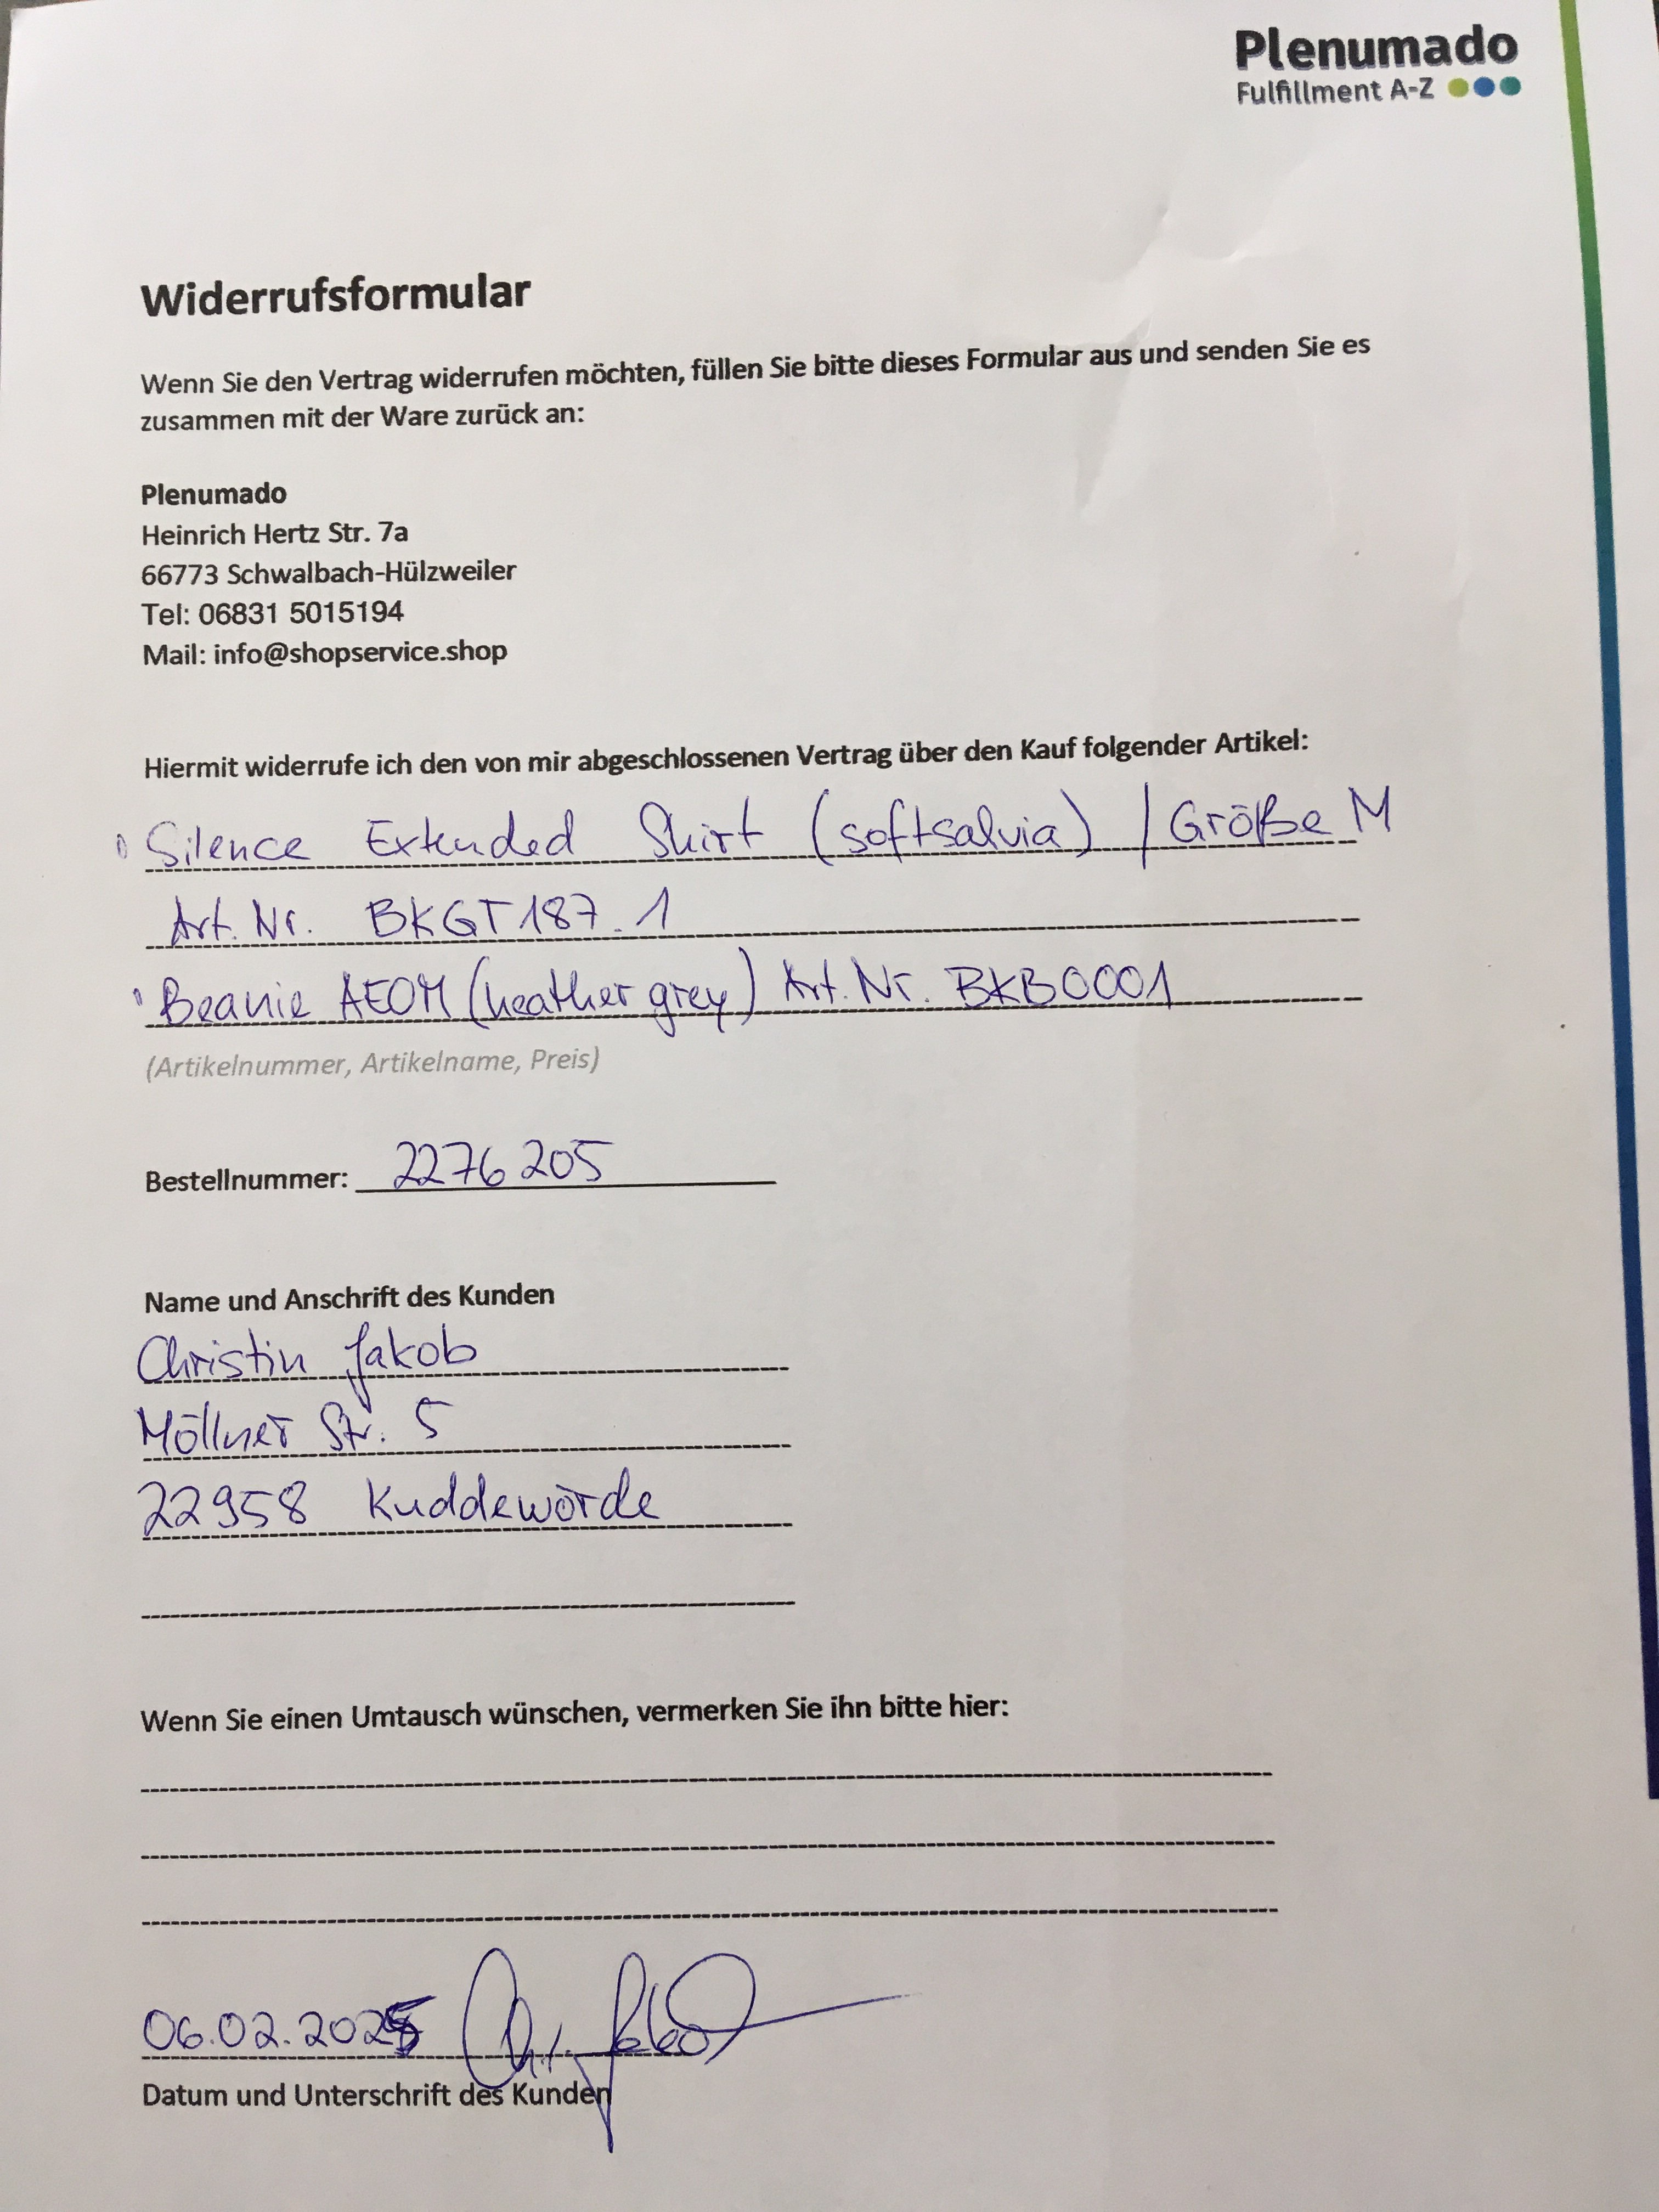 Plenumado
Fulfillment A-Z
Widerrufsformular
Wenn Sie den Vertrag widerrufen möchten, füllen Sie bitte dieses Formular aus und senden Sie es
zusammen mit der Ware zurück an:
Plenumado
Heinrich Hertz Str. 7a
66773 Schwalbach-Hülzweiler
Tel: 06831 5015194
Mail: info@shopservice.shop
Hiermit widerrufe ich den von mir abgeschlossenen Vertrag über den Kauf folgender Artikel:
Silence Extended Shirt (softsalvia) / Größe M
Art. Nr. BKGT187.1
Beanie AEOM (heather grey) Art. Nr. BKB0001
(Artikelnummer, Artikelname, Preis)
Bestellnummer: 2276205
Name und Anschrift des Kunden
Christin Jakob
Möllner Str. 5
22958 Kuddewörde
Wenn Sie einen Umtausch wünschen, vermerken Sie ihn bitte hier:
06.02.2025
Datum und Unterschrift des Kunden